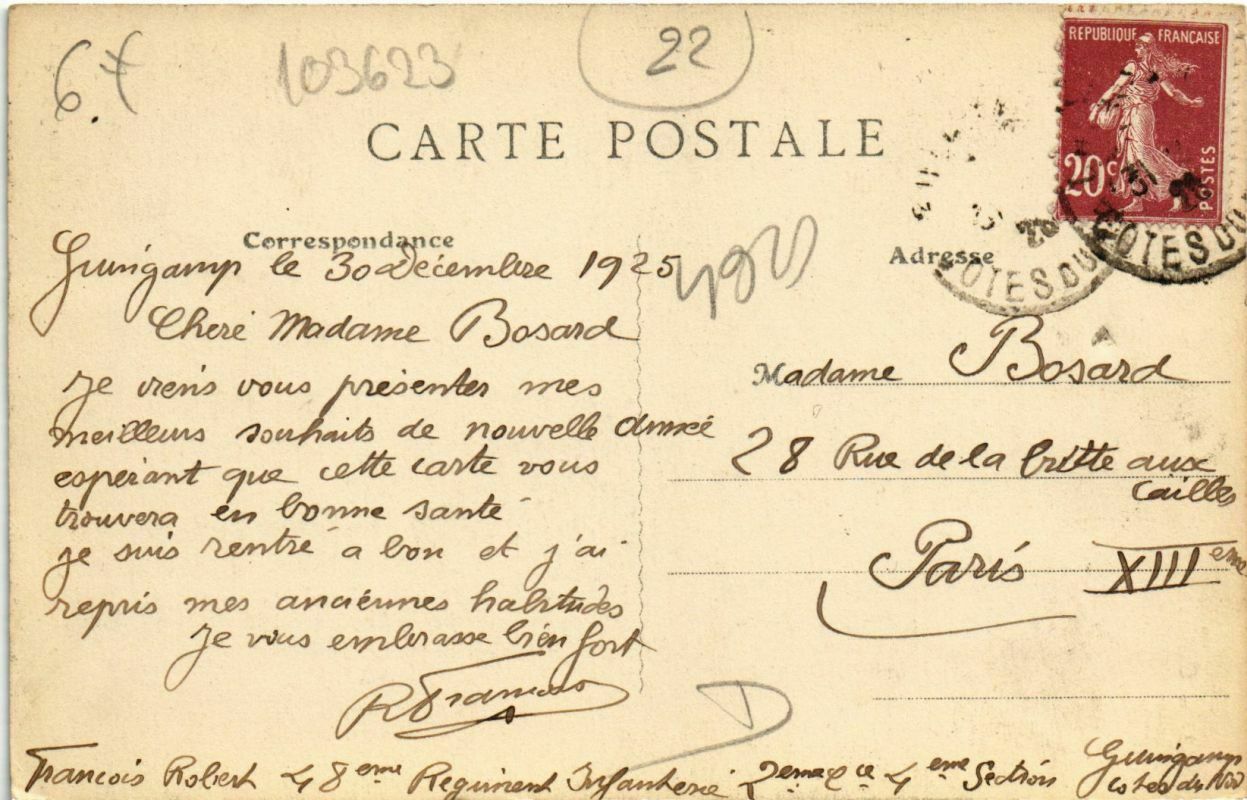 6.7
103623
22
CARTE POSTALE
REPUBLIQUE FRANÇAISE
20c
POSTES
COTES DU
COTES DU
Correspondance
Adresse
Guingamp le 30 Décembre 1925
Cheré Madame Bosard
Je viens vous présenter mes
meilleurs souhaits de nouvelle année
espérant que cette carte vous
trouvera en bonne santé
je suis rentré a bon et j'ai
repris mes anciénnes habitudes
Je vous embrasse bien fort
RFrancois
Madame Bosard
28 Rue de la britte aux
cailles
Paris XIIIeme
François Robert 48eme Regiment Infanterie 2eme Cie 4eme Section Guingamp
Cotes du Nord